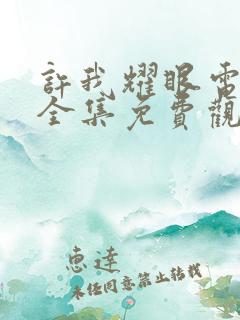 許我耀眼電
全集免費觀
惠達
未經同意禁止轉載